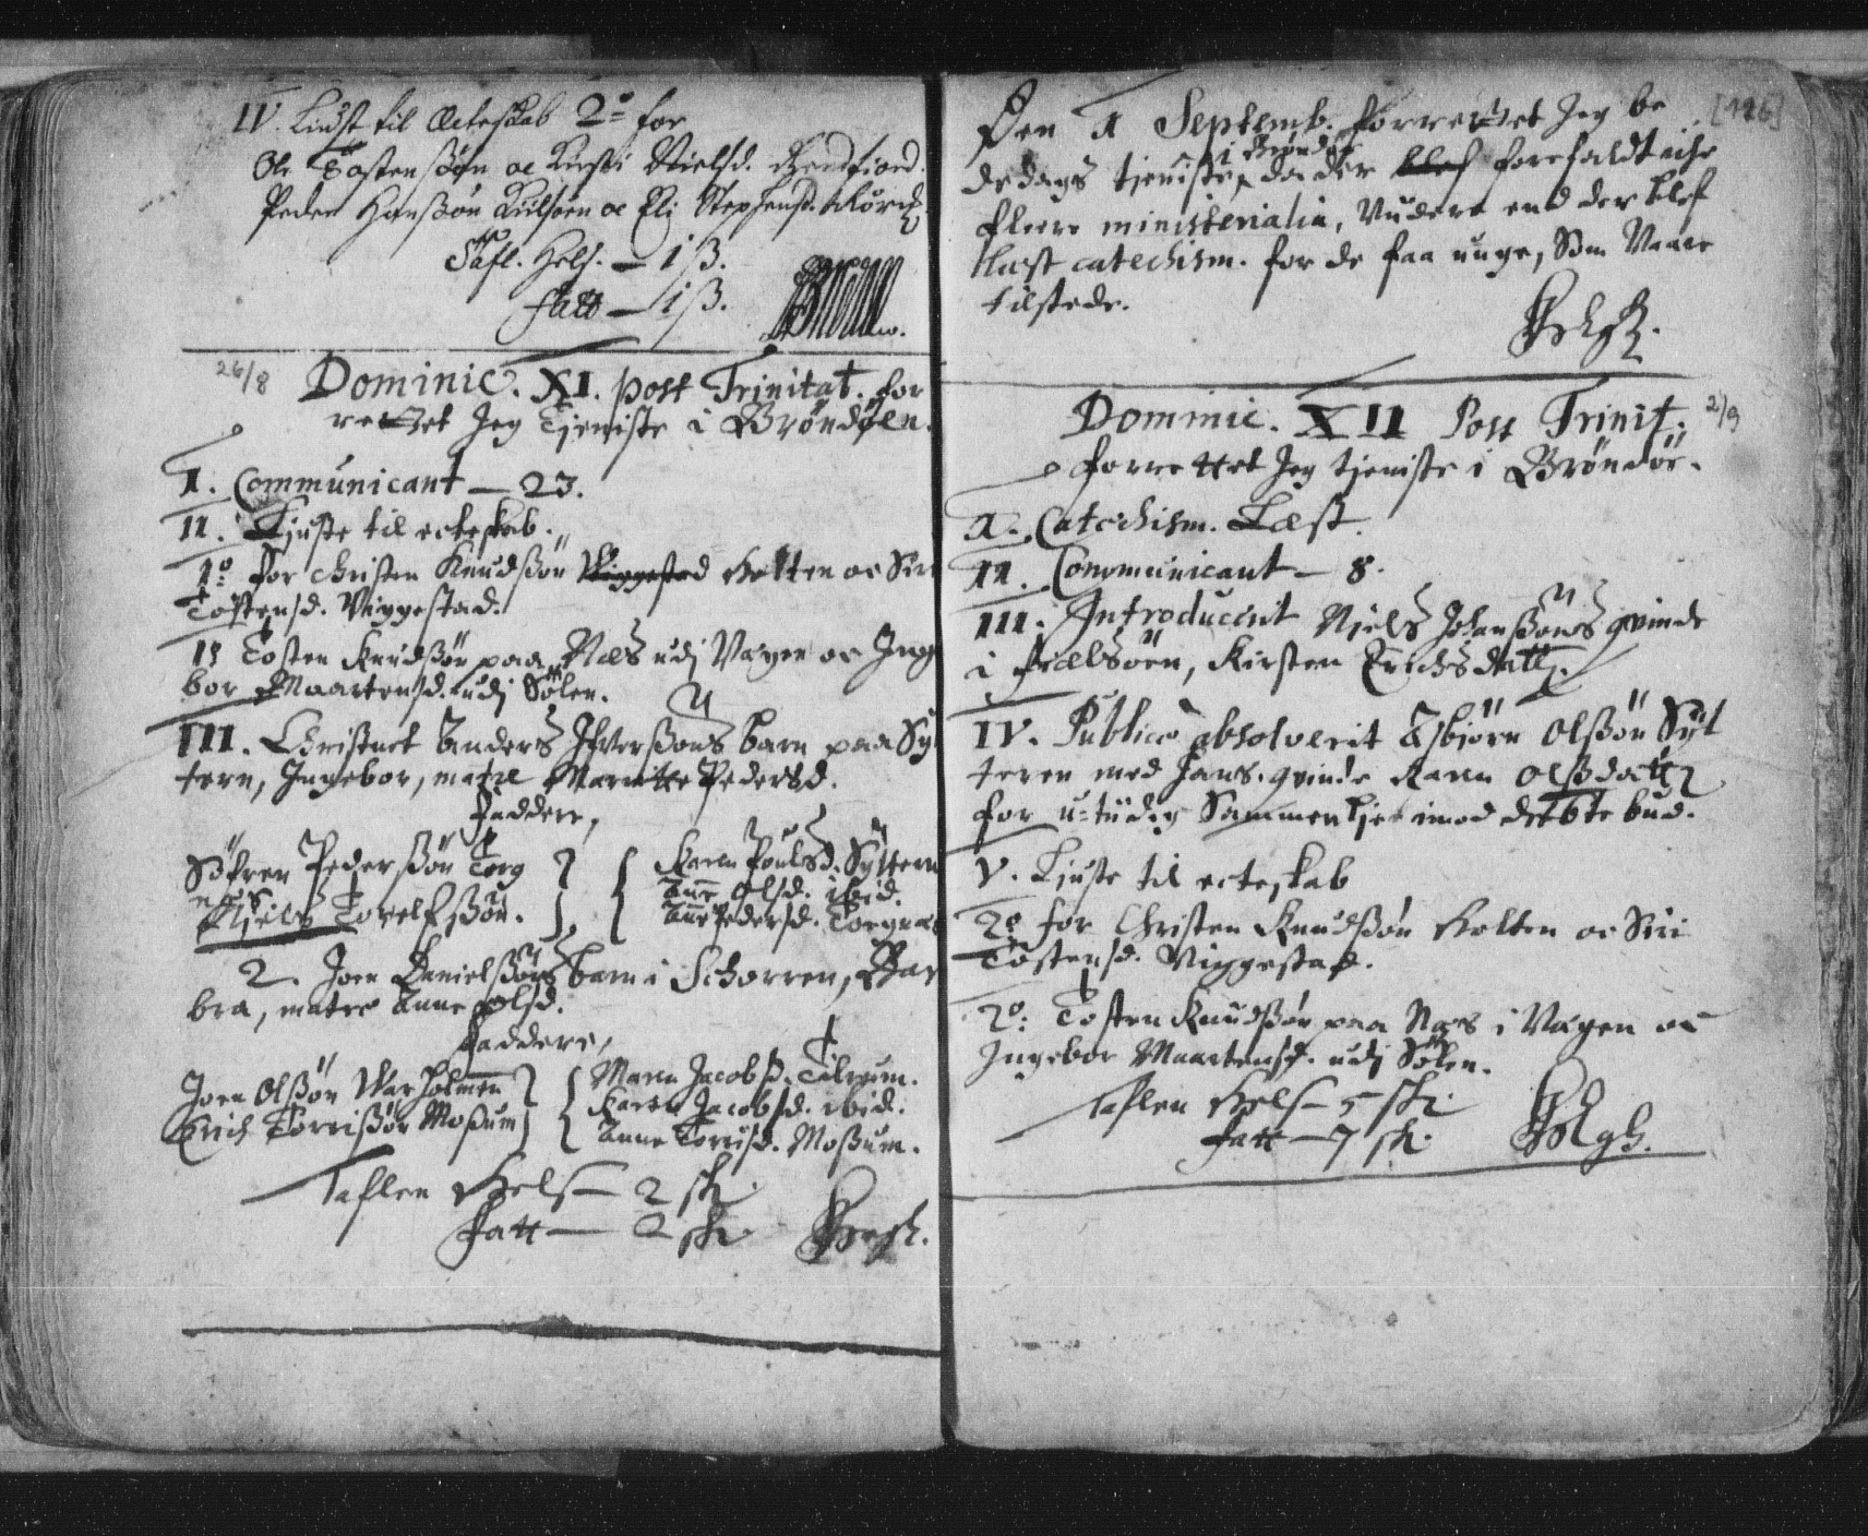 IV. Liust til Ecteskab 2º for
Ole Tostensßøn oc Kirsti Nielsd.
Peder Hanßøn oc Eli Stephensd.
Tafl. Hels. — 1 ß.
Fatt — 1 ß.
26/8 Dominic. XI. post Trinitat. for
rettet Jeg Tjeniste i Brøndøen.
I. Communicant — 23.
II. Ljuste til ecteskab.
1º for Christen Knudßøn Viggestad Holten oc Siri
Tostensd. Viggestad.
1º Tosten Knudßøn paa Næs udj Vagen oc Inge
bor Maartensd. udj Sølen.
III. Christnet Anders Ifverßøns barn paa Syt
tern, Ingebor, matre Maritte Pedersd.
Faddere,
Söfren Pederßøn Torg
næs
Njels Torelfßøn.
Karen Poulsd. Syttern
Anne Olsd. ibid.
Anne Pedersd. Torgnæs
2. Joen Danielßøns barn i Schorren, Bar
bra, matre Anne Olsd.
Faddere,
Joen Olßøn Warholmen
Erich Torrißøn Moßum
Maren Jacobsd. Tilrum.
Karen Jacobsd. ibid.
Anne Torrisd. Moßum.
Taflen Hels — 2 sk.
Fatt — 2 sk.
[126]
Den 1 Septemb. forrettet Jeg be
i Brøndøe
dedags tjeniste, da der blef forefaldt icke
fleere ministerialia, Vudere end der blef
læst catechism. for de faa unge, Som Vaare
tilstede.
Dominic. XII Post Trinit. 2/9
forrettet Jeg tjeniste i Brøndöe.
I. Catechism. Læst.
II. Communicant — 8.
III. Introducerit Njels Johanßøns qvinde
i Fiælsöen, Kirsten Erichsdatt.
IV. Publice absolverit Esbjørn Olßøn Syt
teren med hans qvinde Karen Olßdatt
for u-tiidig Sammenlje imod det 6te bud.
V. Ljuste til ecteskab
2º for Christen Knudßøn Holten oc Siri
Tostensd. Viggestad.
2º. Tosten Knudßøn paa Næs i Vagen oc
Ingebor Maartensd. udj Sølen.
Taflen Hels — 5 sk.
Fatt — 7 sk.